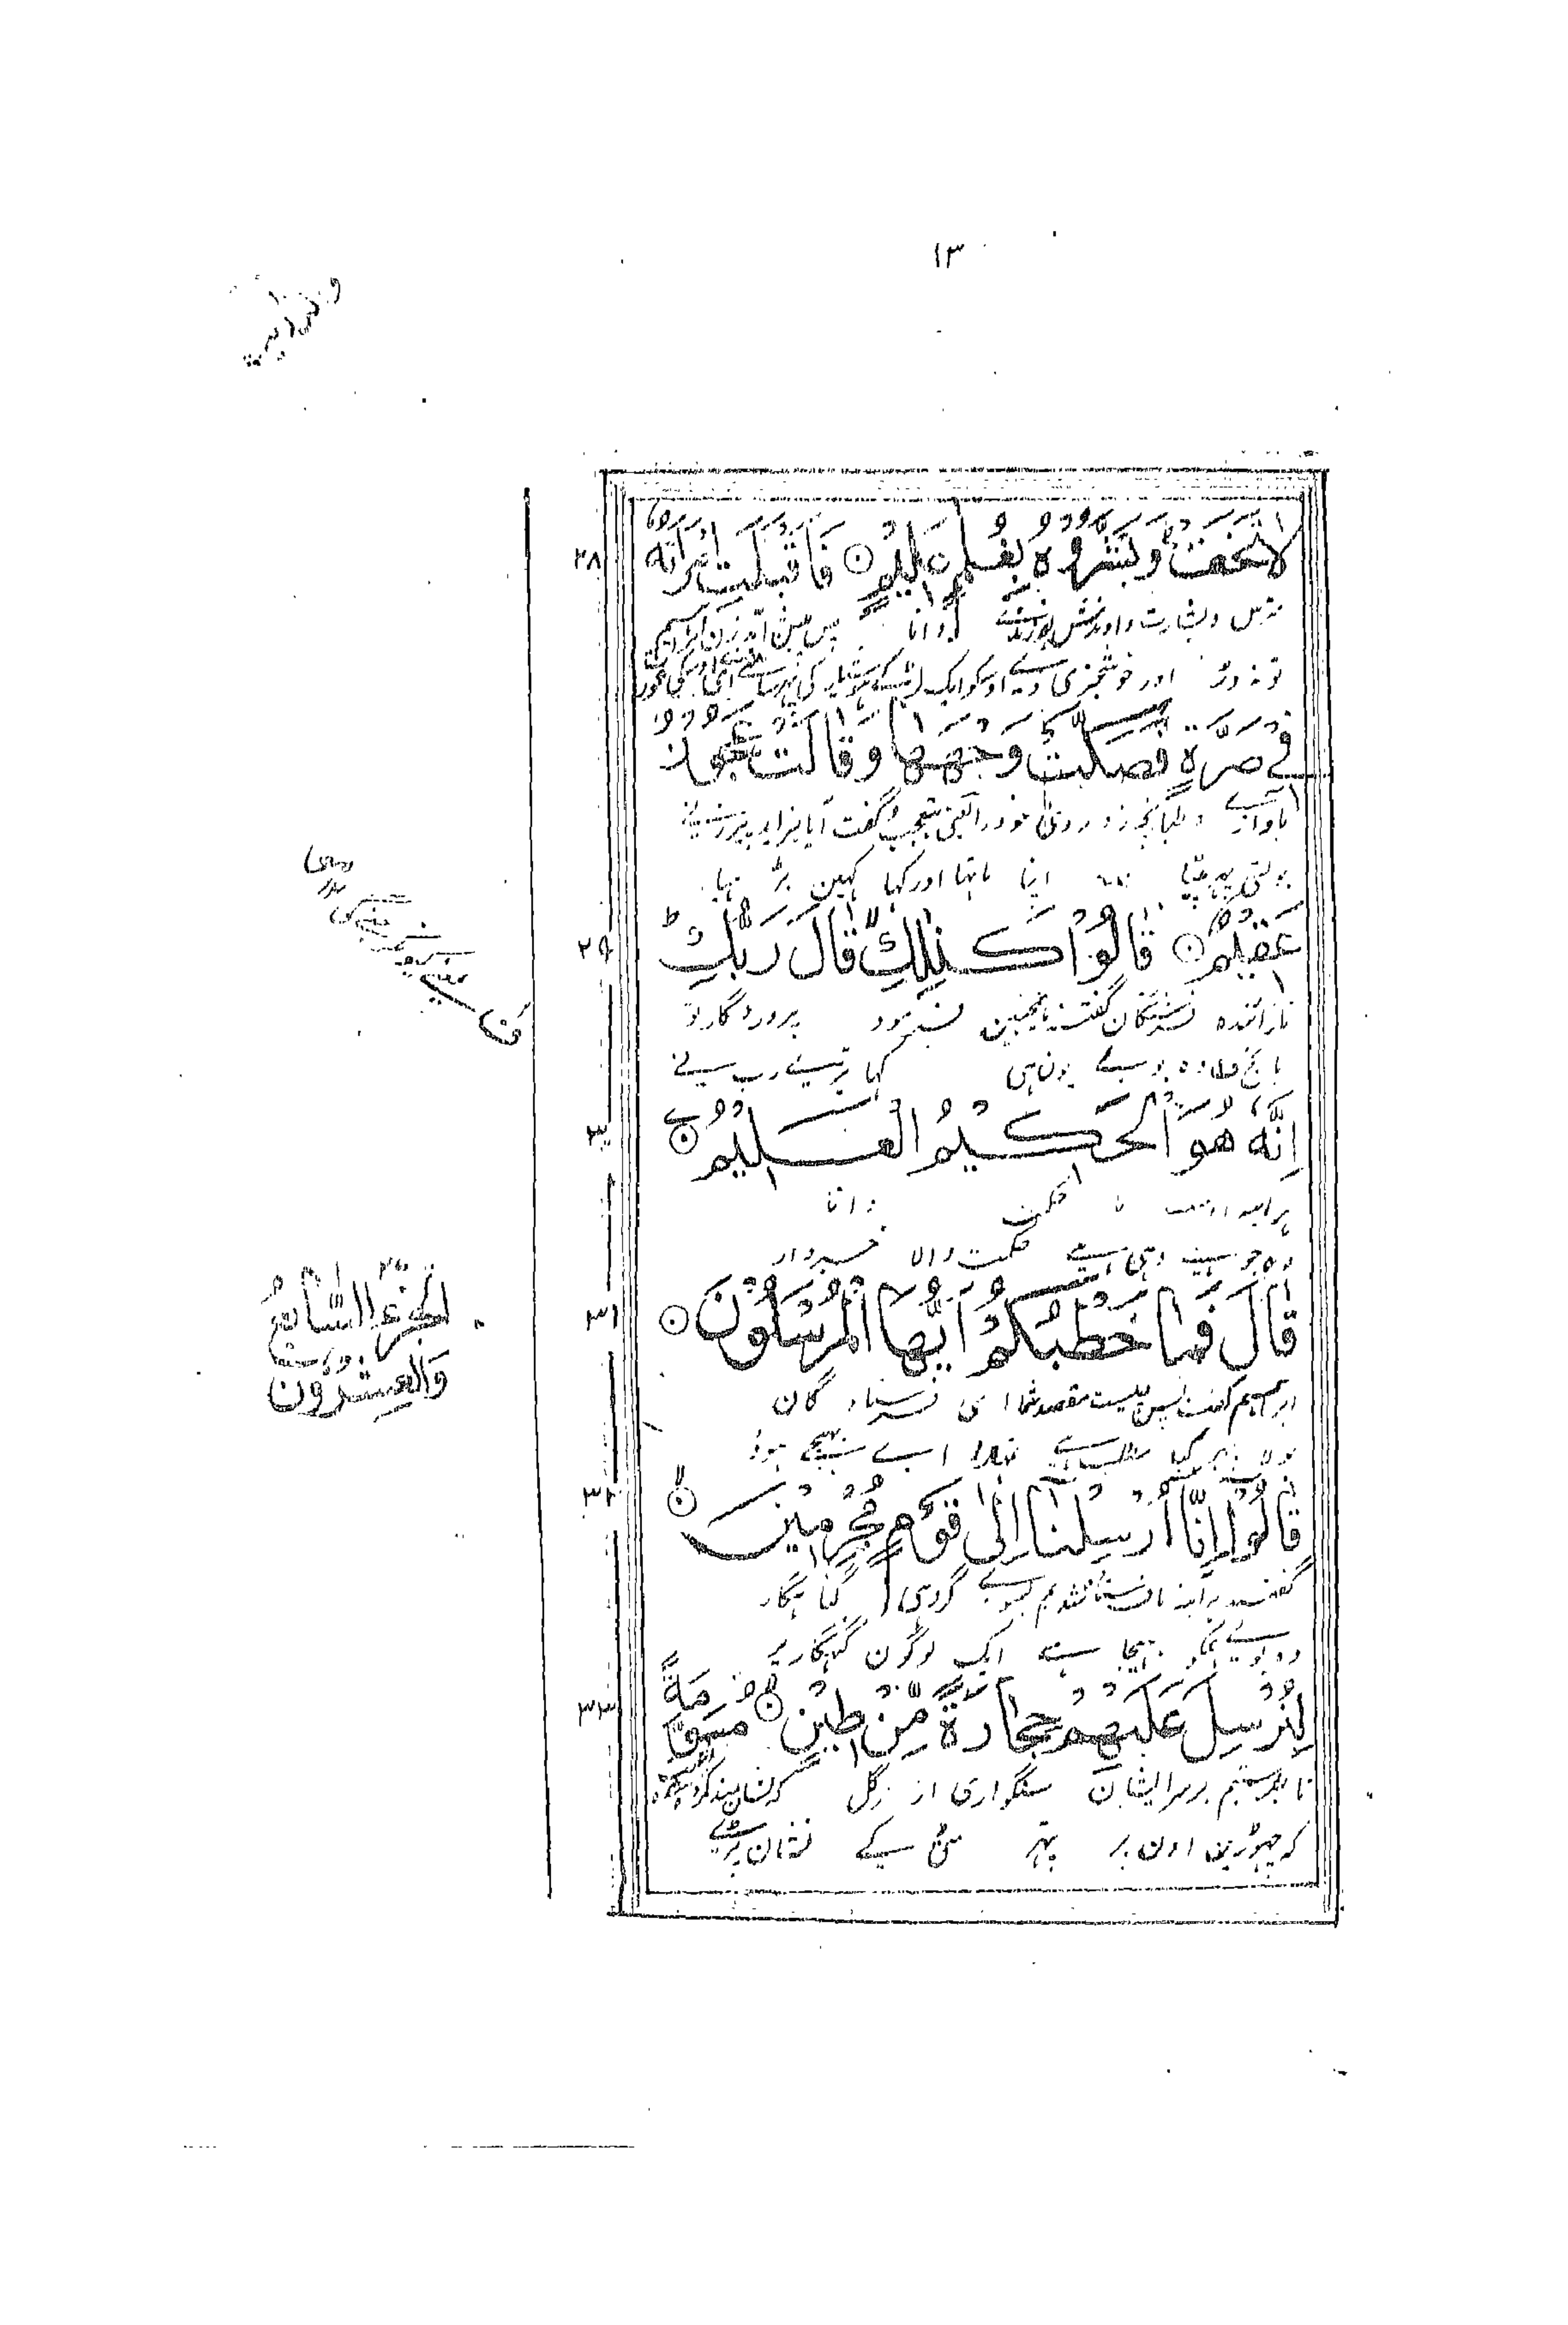 ١٣
والذاريت
لَا تَخَفْ وَبَشَّرُوهُ بِغُلٰمٍ عَلِيْمٍ ○ فَاَقْبَلَتِ امْرَاَتُهٗ
٢٨
مترس وبشارت دادندش بفرزندی دانا پس پیش آمد زن ابراهیم
تو نہ ڈر اور خوشخبری دی اوسکو ایک لڑکے ہوشیار کی پہر سامنے آئی اوسکی عورت
فِيْ صَرَّةٍ فَصَكَّتْ وَجْهَهَا وَقَالَتْ عَجُوْزٌ
بآواز وطپانچہ زد روی خود را تعجب وگفت آیا بزاید پیرزنی
بولتی پہر پیٹا اپنا ماتہا اور کہا کہین بڑہیا
عَقِيْمٌ ○ قَالُوْا كَذٰلِكِ قَالَ رَبُّكِ
٢٩
نازائنده فرشتگان گفتند همچنین فرمود پروردگار تو
بانجھ وہ بولے یون ہی کہا تیرے رب نے
اِنَّهٗ هُوَ الْحَكِيْمُ الْعَلِيْمُ ○
٣٠
هرآینه اوست با حکمت دانا
وہ جو ہے وہی ہے حکمت والا خبردار
قَالَ فَمَا خَطْبُكُمْ اَيُّهَا الْمُرْسَلُوْنَ ○
٣١
الجزء السابع
والعشرون
ابراهیم گفت پس چیست مقصد شما ای فرستادگان
بولا پہر کیا مطلب ہے تمہارا اے بہیجے ہوؤ
قَالُوْٓا اِنَّآ اُرْسِلْنَآ اِلٰى قَوْمٍ مُّجْرِمِيْنَ ○
٣٢
گفتند هرآینه ما فرستاده شدیم بسوی گروهی گناهگار
وہ بولے ہمکو بہیجا ہے ایک لوگون گنہگار پر
لِنُرْسِلَ عَلَيْهِمْ حِجَارَةً مِّنْ طِيْنٍ ○ مُّسَوَّمَةً
٣٣
تا بفرستیم بر سر ایشان سنگواری از گل که نشانمند کرده شده
کہ چہوڑین اون پر پتہر مٹی کے نشان پڑے